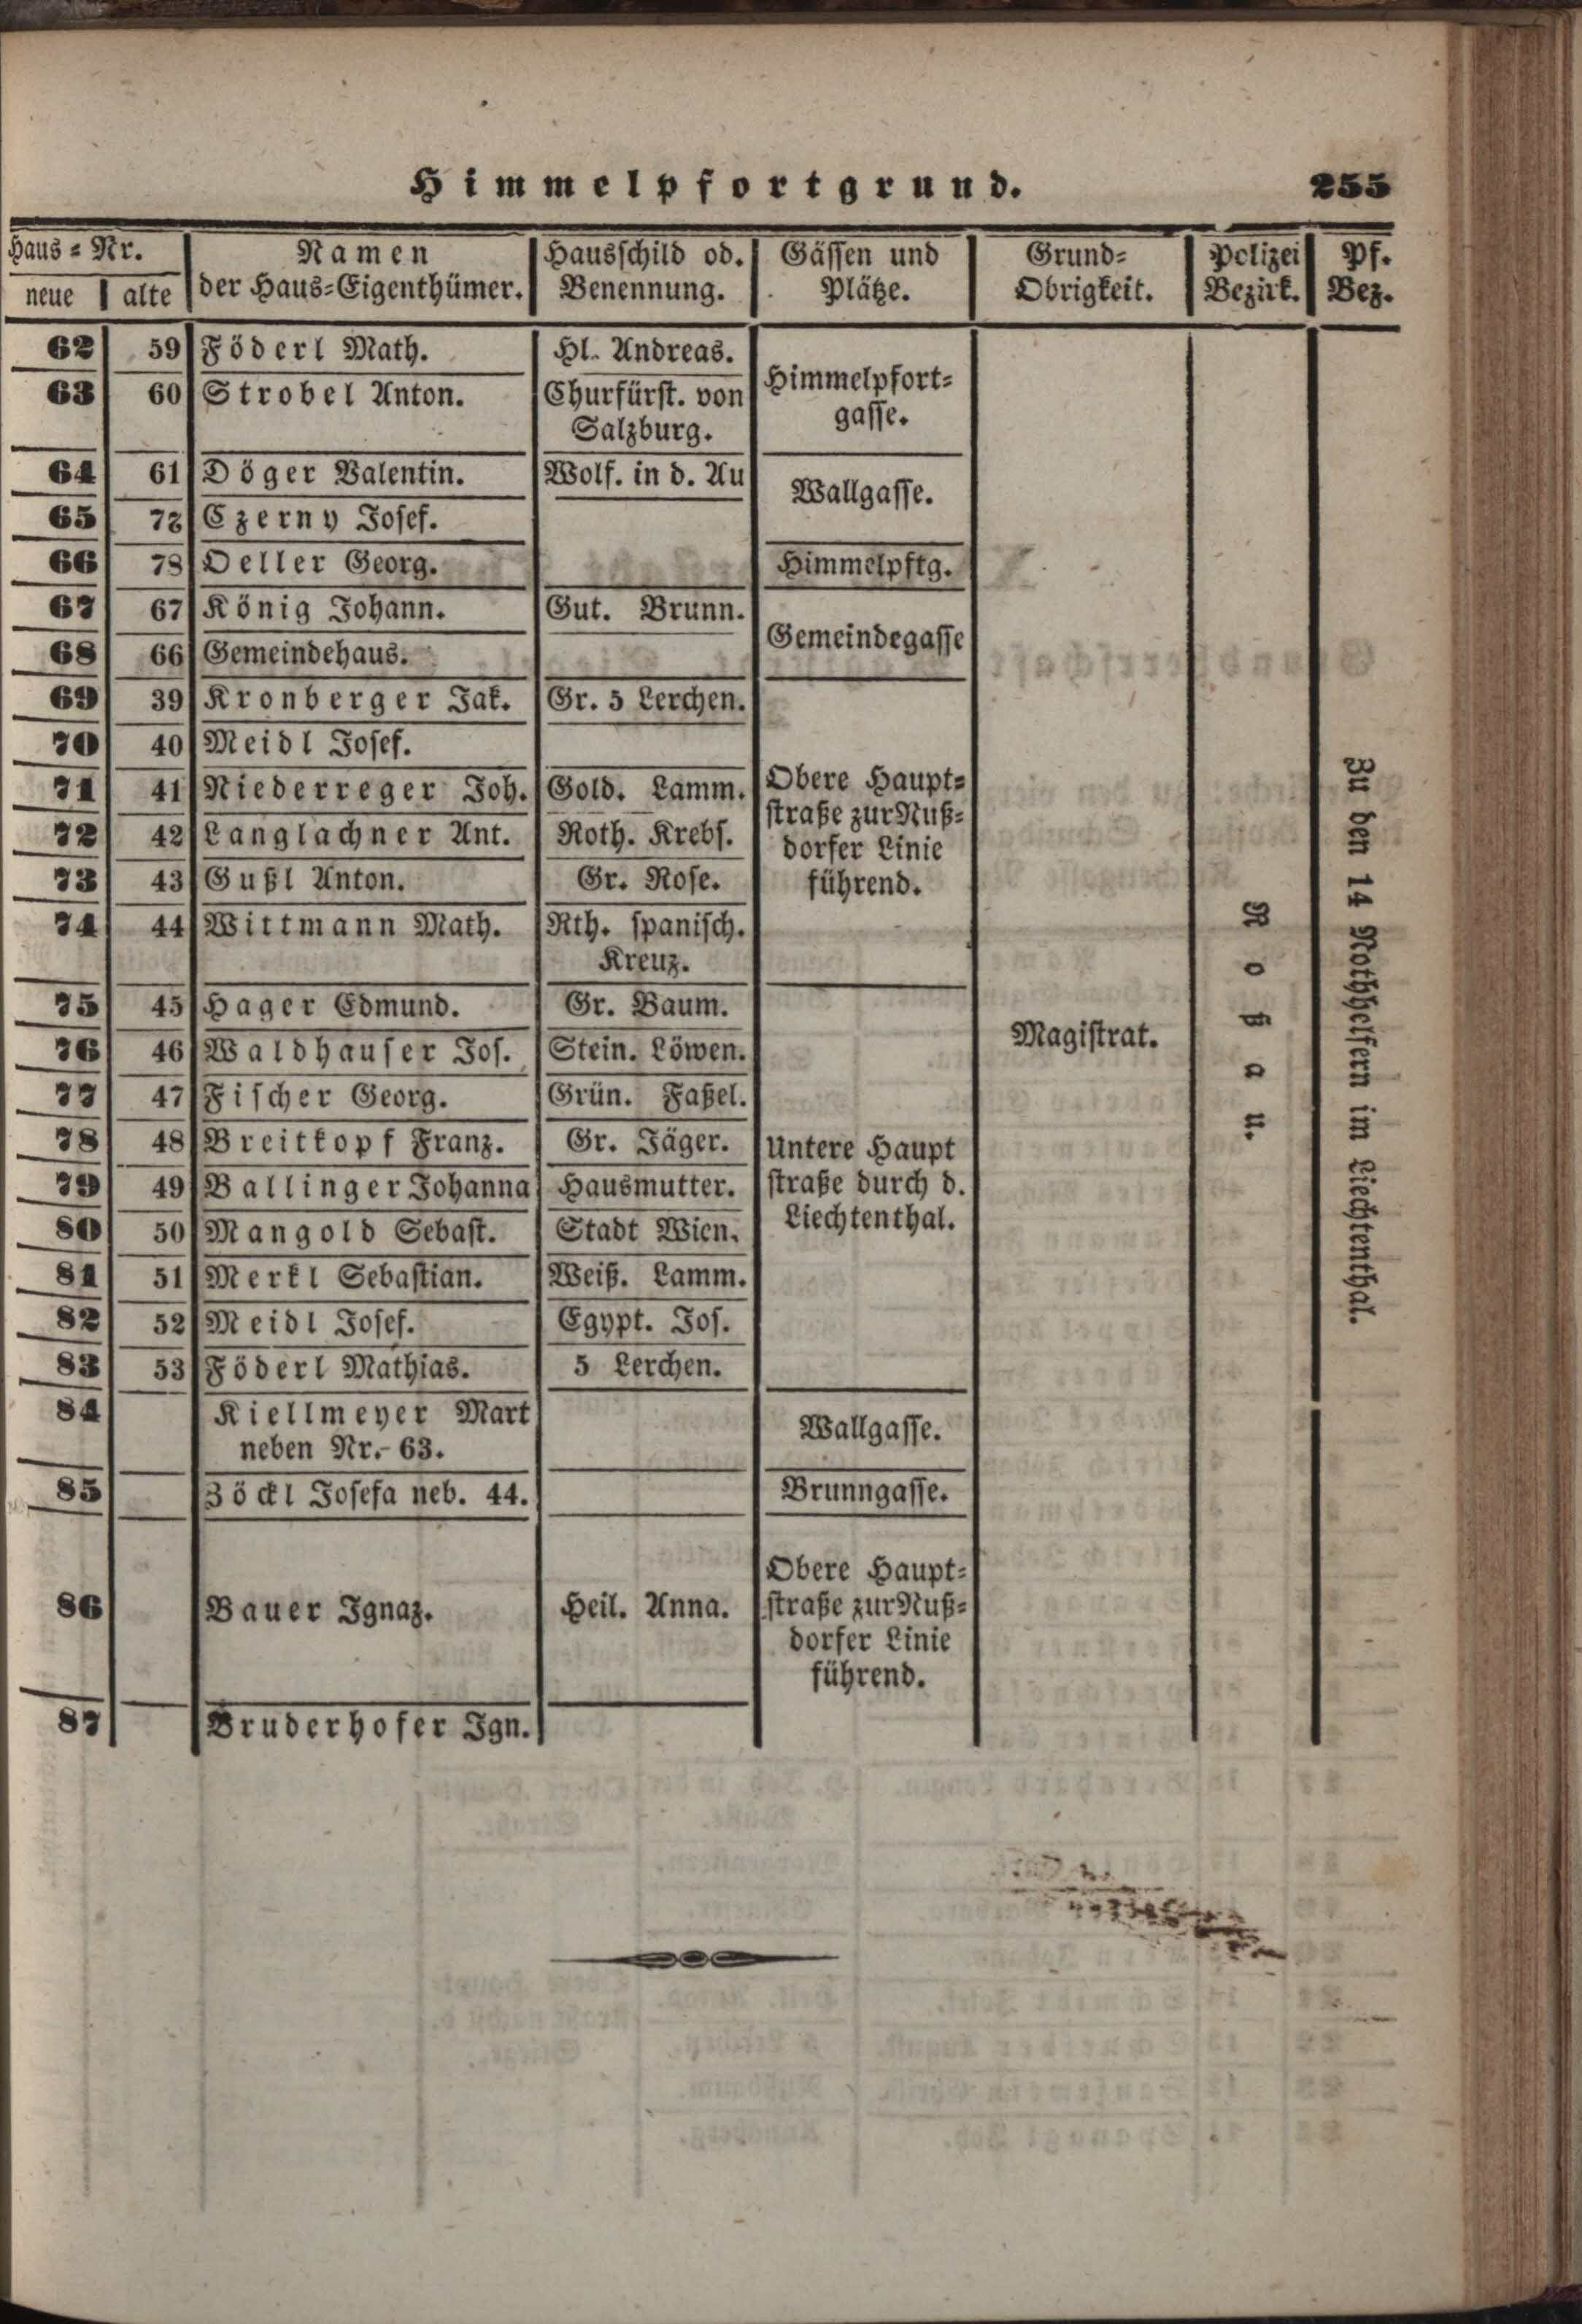 Himmelpfortgrund. 255
Haus-Nr. Namen Hausschild od. Gässen und Grund- Polizei Pf.
neue alte der Haus-Eigenthümer. Benennung. Plätze. Obrigkeit. Bezirk. Bez.
62 59 Föderl Math. Hl. Andreas.
Himmelpfort-
63 60 Strobel Anton. Churfürst. von
gasse.
Salzburg.
64 61 Döger Valentin. Wolf. in d. Au
Wallgasse.
65 Czerny Josef.
66 78 Oeller Georg. Himmelpftg.
67 67 König Johann. Gut. Brunn.
Gemeindegasse
68 66 Gemeindehaus.
69 39 Kronberger Jak. Gr. 5 Lerchen.
70 40 Meidl Josef.
71 41 Niederreger Joh. Gold. Lamm. Obere Haupt-
straße zur Nuß-
72 42 Langlachner Ant. Roth. Krebs. dorfer Linie
73 43 Gußl Anton. Gr. Rose. führend.
74 44 Wittmann Math. Rth. spanisch.
Kreuz.
75 45 Hager Edmund. Gr. Baum.
Magistrat.
Roßau.
Zu den 14 Nothhelfern im Liechtenthal.
76 46 Waldhauser Jos. Stein. Löwen.
77 47 Fischer Georg. Grün. Faßel.
78 48 Breitkopf Franz. Gr. Jäger. Untere Haupt
79 49 Ballinger Johanna Hausmutter. straße durch d.
80 50 Mangold Sebast. Stadt Wien. Liechtenthal.
81 51 Merkl Sebastian. Weiß. Lamm.
82 52 Meidl Josef. Egypt. Jos.
83 53 Föderl Mathias. 5 Lerchen.
84 Kiellmeyer Mart
Wallgasse.
neben Nr. 63.
85 Zöckl Josefa neb. 44. Brunngasse.
Obere Haupt-
86 Bauer Ignaz. Heil. Anna. straße zur Nuß-
dorfer Linie
führend.
87 Bruderhofer Ign.